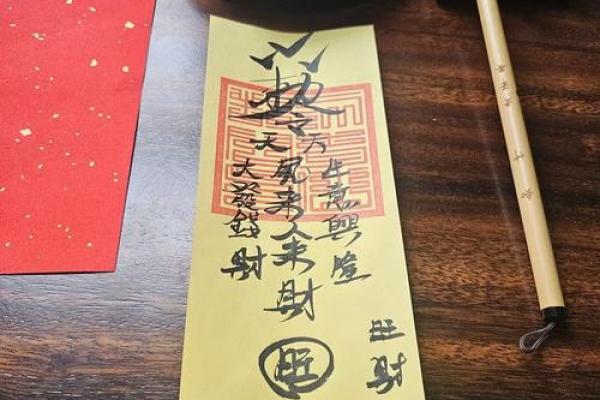 敕令
天
万
生意興隆
來人來財
大發錢財
旺
旺財